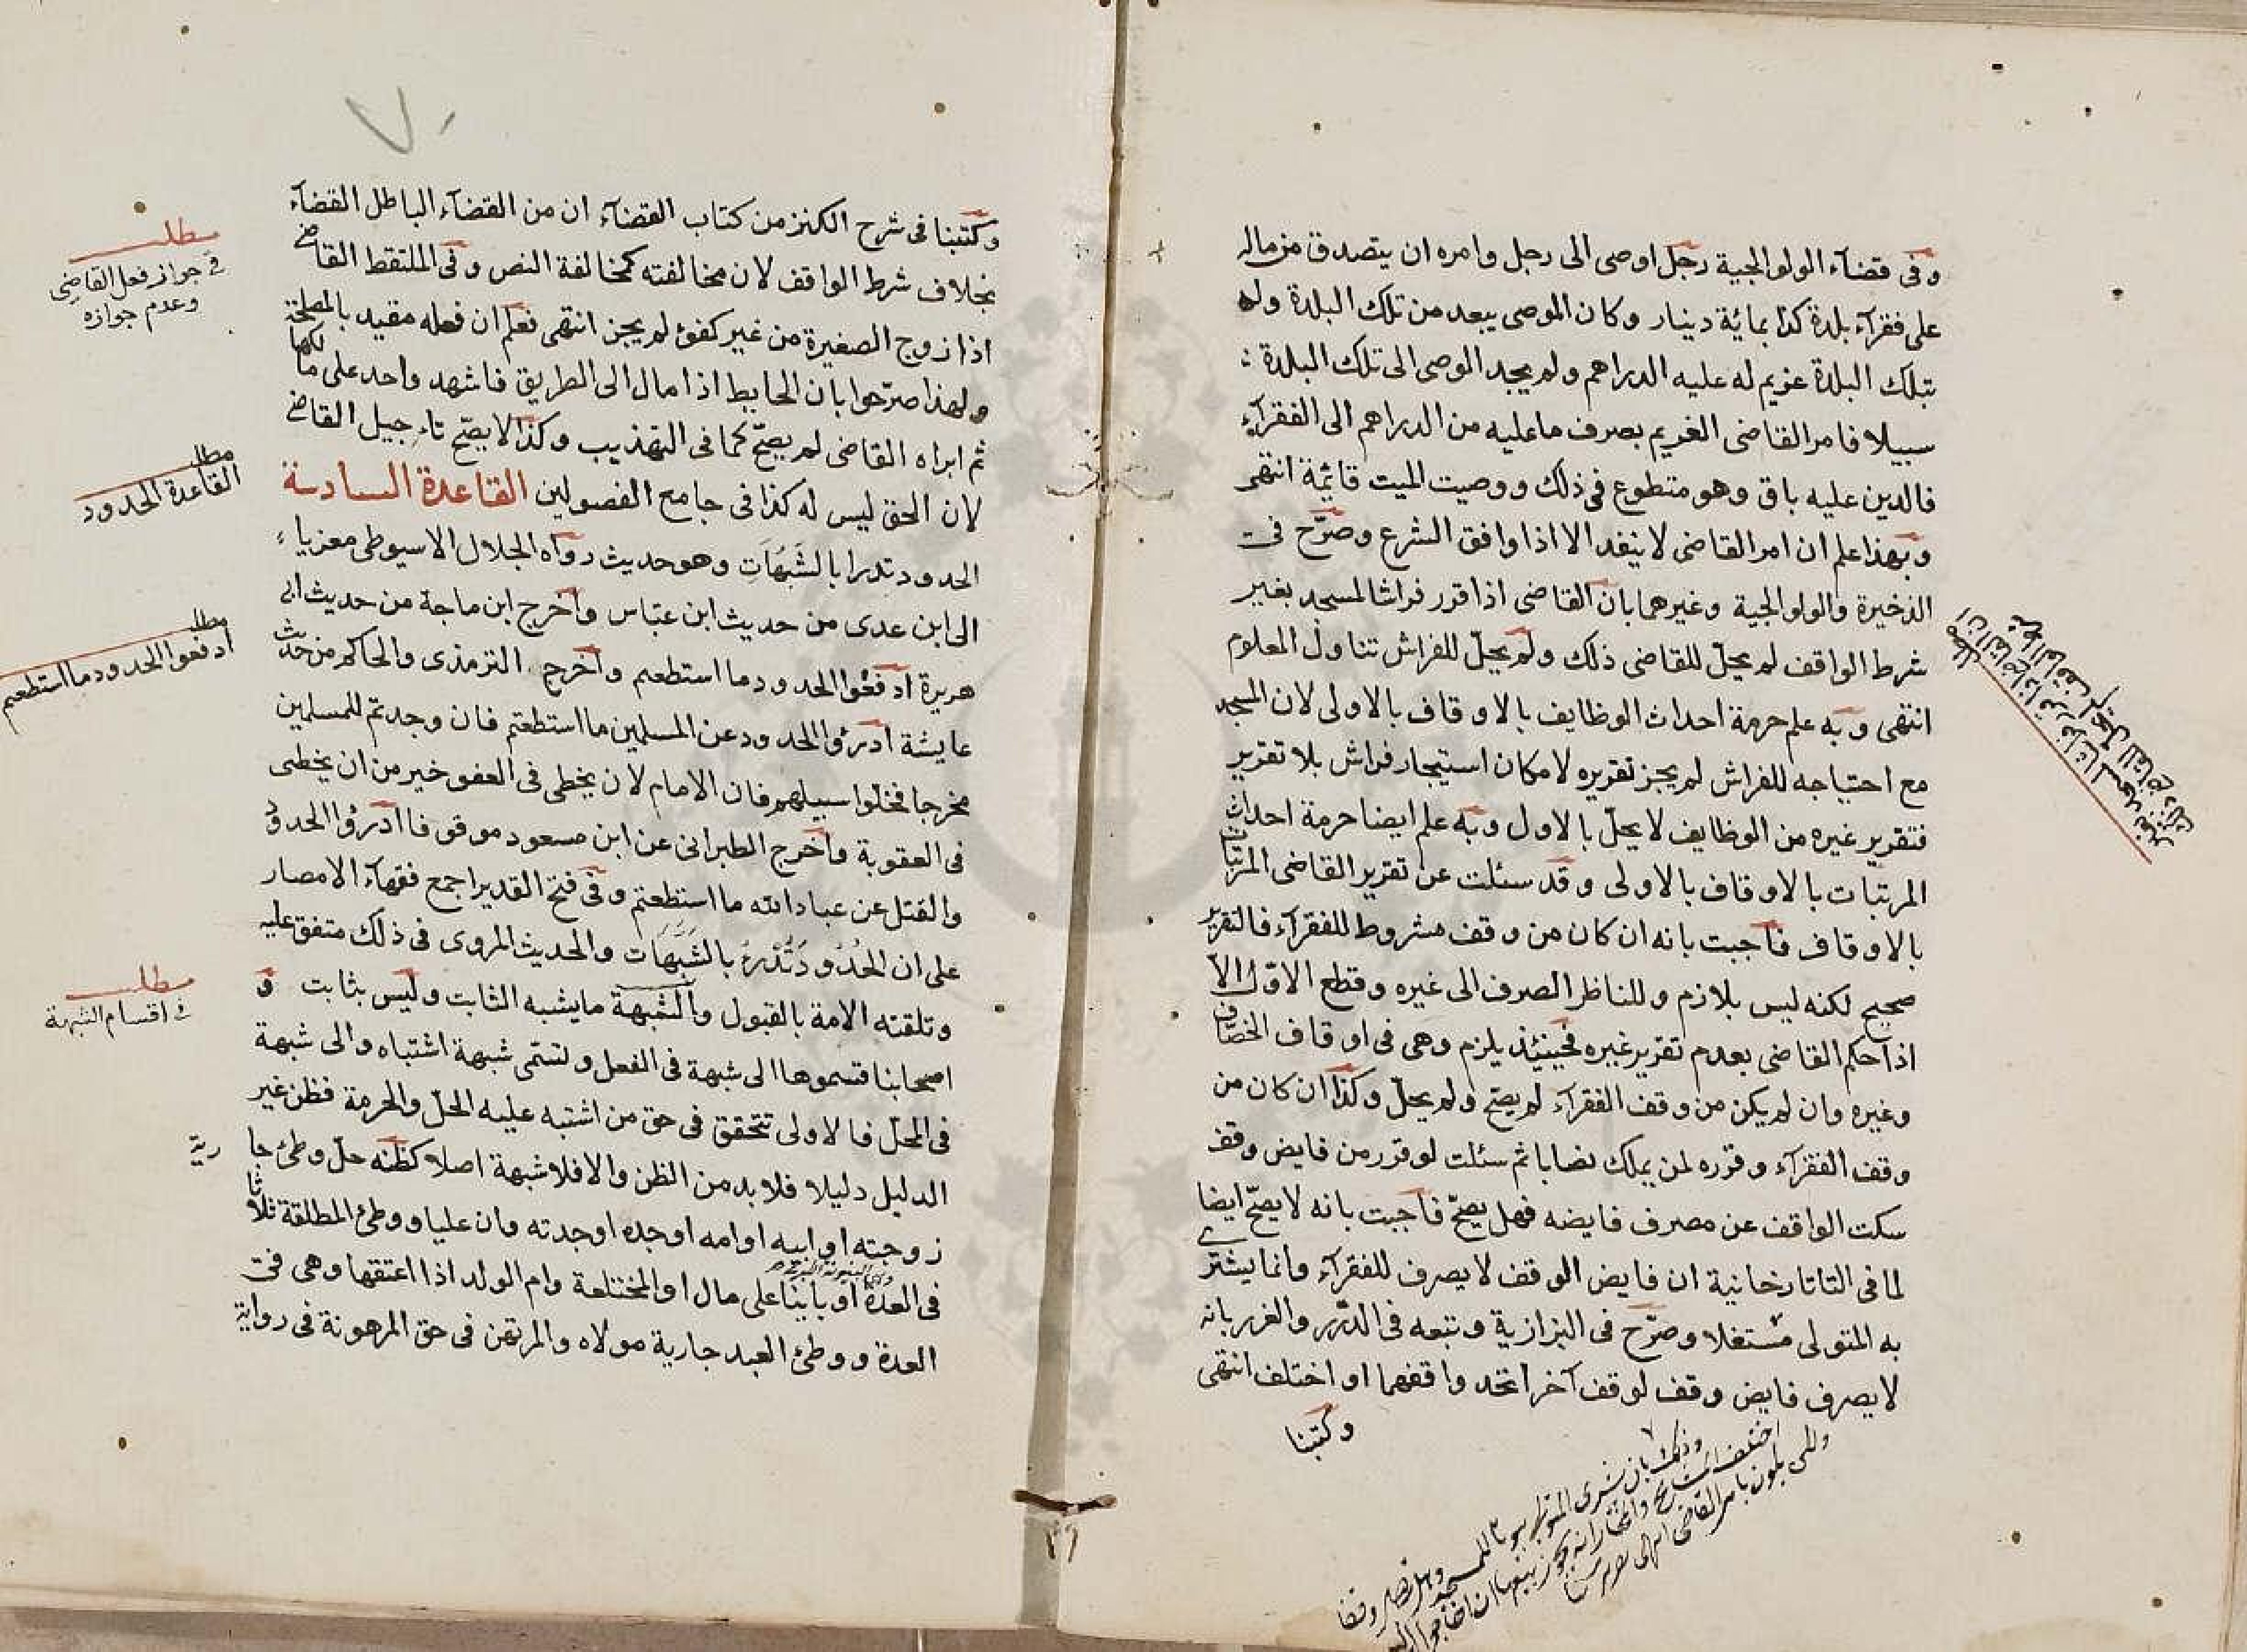 وفى قضآء الولوالجية رجل اوصى الى رجل وامره ان يتصدق من ماله
على فقرآء بلدة كذا بمائة دينار وكان الموصى ببعد من تلك البلدة وله
بتلك البلدة غريم له عليه الدراهم ولم يجد الوصى الى تلك البلدة
سبيلا فامر القاضى الغريم بصرف ما عليه من الدراهم الى الفقرآء
فالدين عليه باق وهو متطوع فى ذلك ووصيت الميت قائمة انتهى
وبهذا علم ان امر القاضى لا ينفد الا اذا وافق الشرع وصرّح فى
الذخيرة والولوالجية وغيرهما بان القاضى اذا قرر فراشا لمسجد بغير
شرط الواقف لم يحلّ للقاضى ذلك ولم يحلّ للفراش تناول المعلوم
انتهى وبه علم حرمة احداث الوظايف بالاوقاف بالاولى لان المسجد
مع احتياجه للفراش لم يجز تقريره لامكان استيجار فراش بلا تقرير
فتقرير غيره من الوظايف لا يحلّ بالاول وبه علم ايضا حرمة احداث
المرتبات بالاوقاف بالاولى وقد سئلت عن تقرير القاضى المرتبات
بالاوقاف فاجبت بانه ان كان من وقف مشروط للفقرآء فالتقرير
صحيح لكنه ليس بلازم وللناظر الصرف الى غيره وقطع الاوّل الا
اذا حكم القاضى بعدم تقرير غيره فحينئذ يلزم وهى فى اوقاف الخصّاف
وغيره وان لم يكن من وقف الفقرآء لم يصحّ ولم يحلّ وكذا ان كان من
وقف الفقرآء وقرره لمن يملك نصابا ثم سئلت لو قرر من فايض وقف
سكت الواقف عن مصرف فايضه فهل يصحّ فاجبت بانه لا يصحّ ايضا
لما فى التاتارخانية ان فايض الوقف لا يصرف للفقرآء وانما يشترى
به المتولى مستغلا وصرّح فى البزازية وتبعه فى الدّرر والغرر بانه
لا يصرف فايض وقف لوقف آخر اتحد واقفهما او اختلف انتهى
وكتبنا
وكتبنا فى شرح الكنز من كتاب القضآء ان من القضآء الباطل القضآء
بخلاف شرط الواقف لان مخالفته كمخالفة النص وفى الملتقط القاضى
اذا زوج الصغيرة من غير كفؤ لم يجز انتهى فعلم ان فعله مقيد بالمصلحة
ولهذا صرّحوا بان الحايط اذا مال الى الطريق فاشهد واحد على مالكها
ثم ابراه القاضى لم يصحّ كما فى التهذيب وكذا لا يصحّ تاءجيل القاضى
لان الحق ليس له كذا فى جامع الفصولين القاعدة السادسة
الحدود تدرا بالشبهات وهو حديث رواه الجلال الاسيوطى معزيا
الى ابن عدى من حديث ابن عبّاس واخرج ابن ماجة من حديث ابى
هريرة ادفعوا الحدود ما استطعتم واخرج الترمذى والحاكم من حديث
عايشة ادرؤا الحدود عن المسلمين ما استطعتم فان وجدتم للمسلمين
مخرجا فخلوا سبيلهم فان الامام لان يخطى فى العفو خير من ان يخطى
فى العقوبة واخرج الطبرانى عن ابن مسعود موقوفا ادرؤا الحدود
والقتل عن عباد الله ما استطعتم وفى فتح القدير اجمع فقهآء الامصار
على ان الحدود تدرئ بالشبهات والحديث المروى فى ذلك متفق عليه
وتلقته الامة بالقبول والشبهة ما يشبه الثابت وليس بثابت و
اصحابنا قسموها الى شبهة فى الفعل وتسمّى شبهة اشتباه والى شبهة
فى المحلّ فالاولى تتحقق فى حق من اشتبه عليه الحلّ والحرمة فظن غير
الدليل دليلا فلا بد من الظن والا فلا شبهة اصلا كظنه حلّ وطئ جارية
زوجته او ابيه او امه او جده او جدته وان عليا ووطئ المطلقة ثلاثا
فى العدة او باينا على مال او المختلعة وام الولد اذا اعتقها وهى فى
العدة ووطئ العبد جارية مولاه والمرتهن فى حق المرهونة فى رواية
مطلب
فى جواز فعل القاضى
وعدم جوازه
مطلب
القاعدة الحدود
مطلب
ادفعوا الحدود ما استطعتم
مطلب
فى اقسام الشبهة